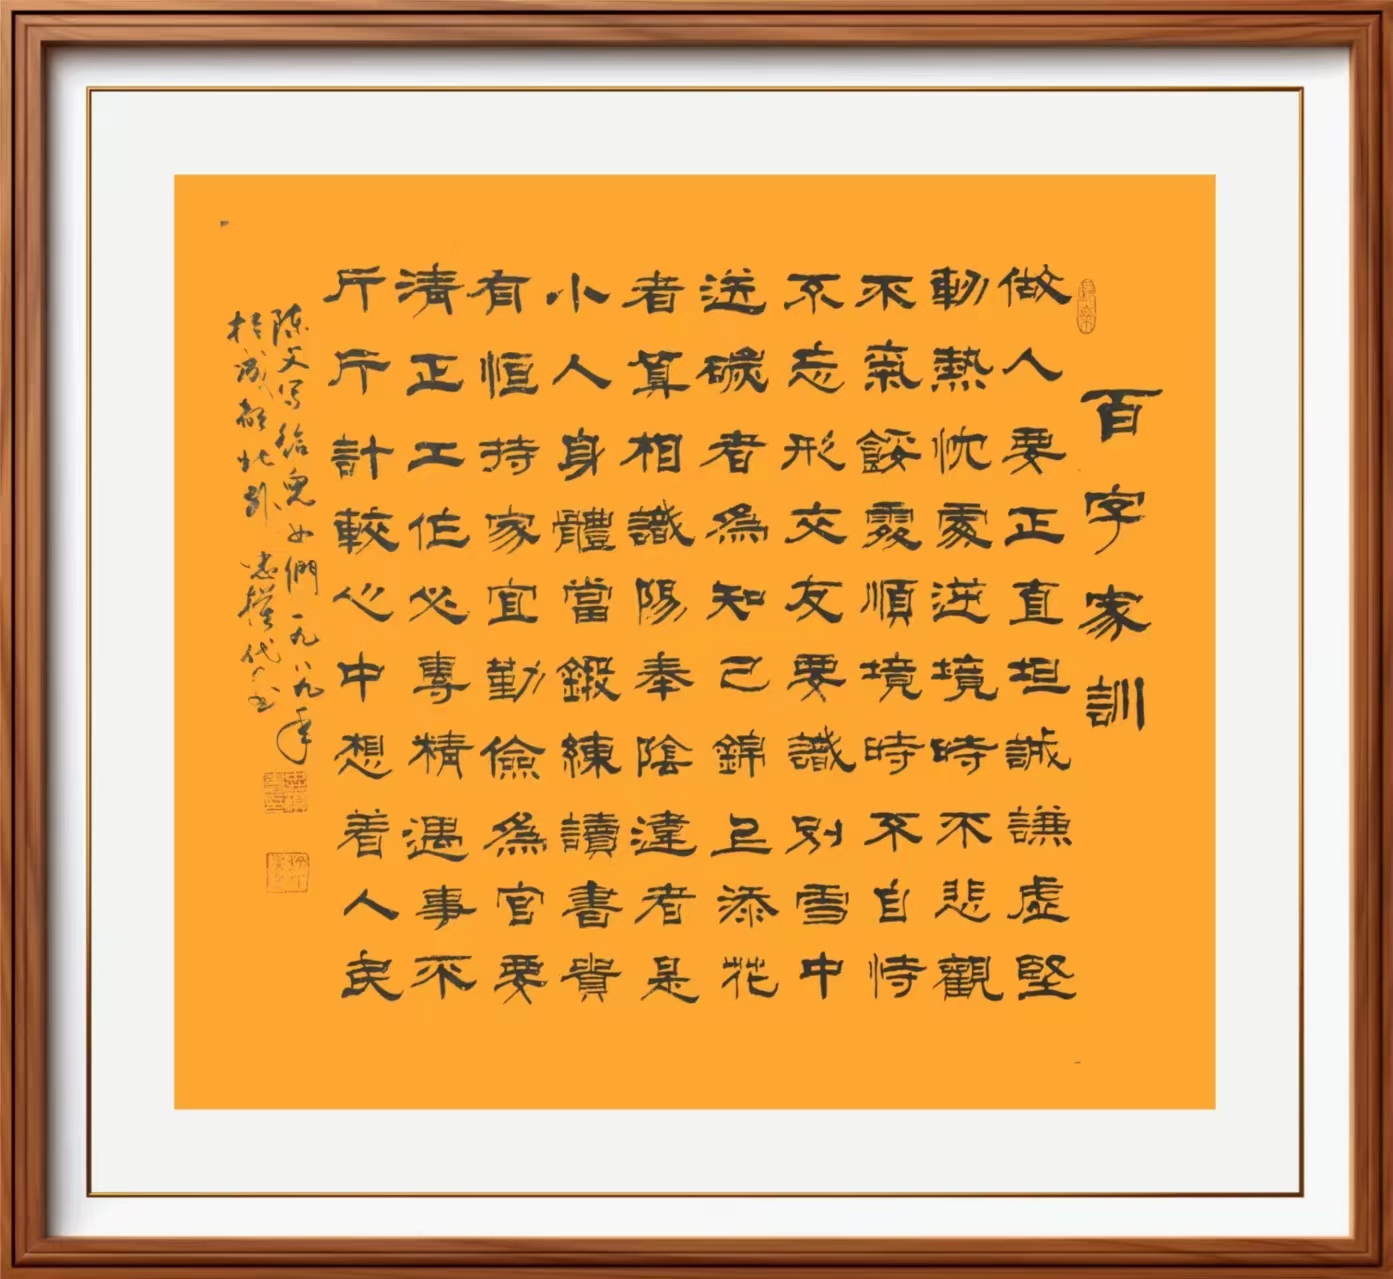 百字家訓
做人要正直坦誠謙虛堅
軔熱忱處逆境時不悲觀
不氣餒處順境時不自恃
不忘形交友要識別雪中
送碳者為知己錦上添花
者算相識陽奉陰違者是
小人身體當鍛練讀書貴
有恒持家宜勤儉為官要
清正工作必專精遇事不
斤斤計較心中想着人民
陈文写給兒女們一九八九年
於成都北郊 代书